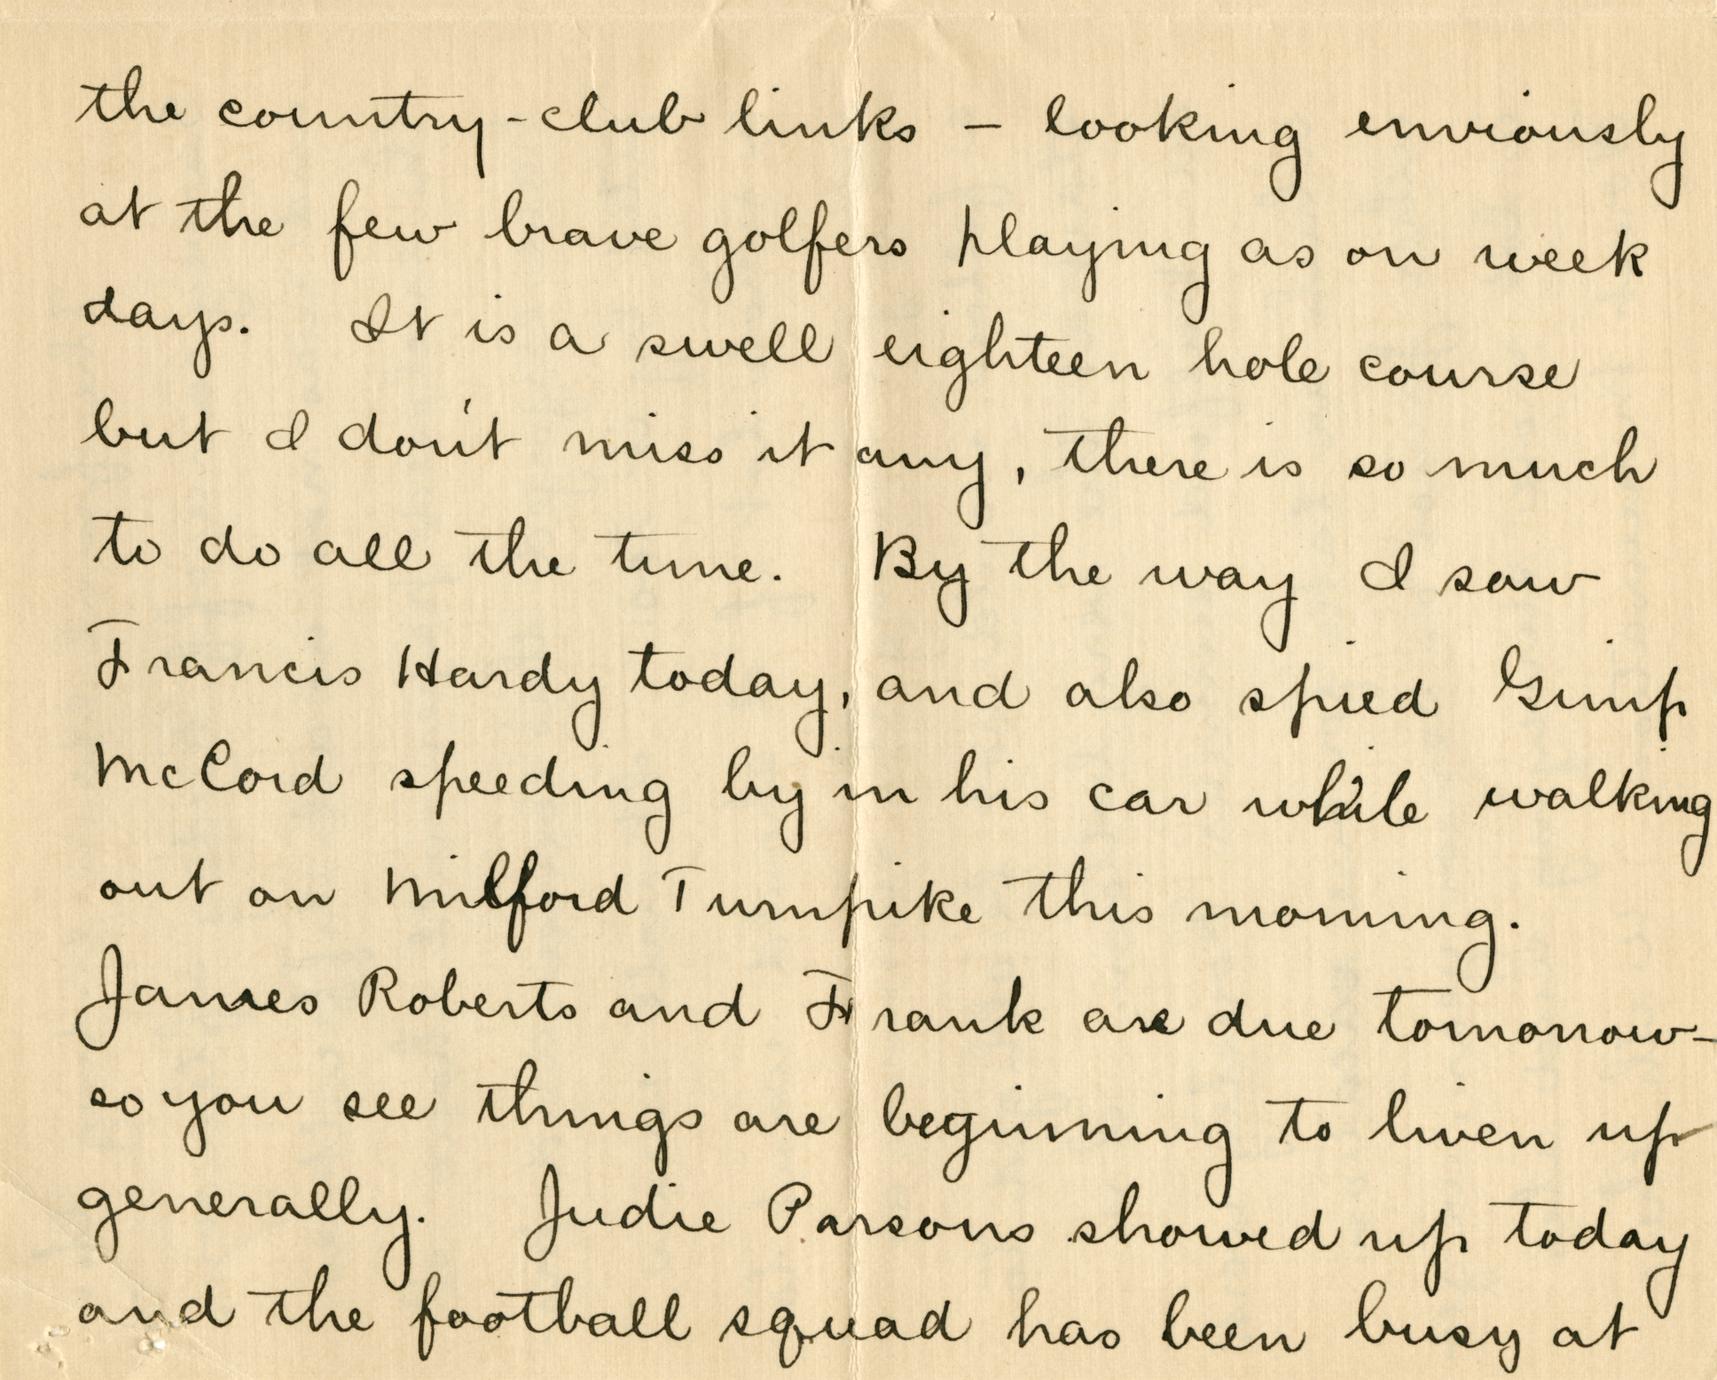 the country-club links - looking enviously
at the few brave golfers playing as on week
days. It is a swell eighteen hole course
but I don't miss it any, there is so much
to do all the time. By the way I saw
Francis Hardy today, and also spied Gimp
McCord speeding by in his car while walking
out on Milford Turnpike this morning.
James Roberts and Frank are due tomorrow-
so you see things are beginning to liven up
generally. Judie Parsons showed up today
and the football squad has been busy at